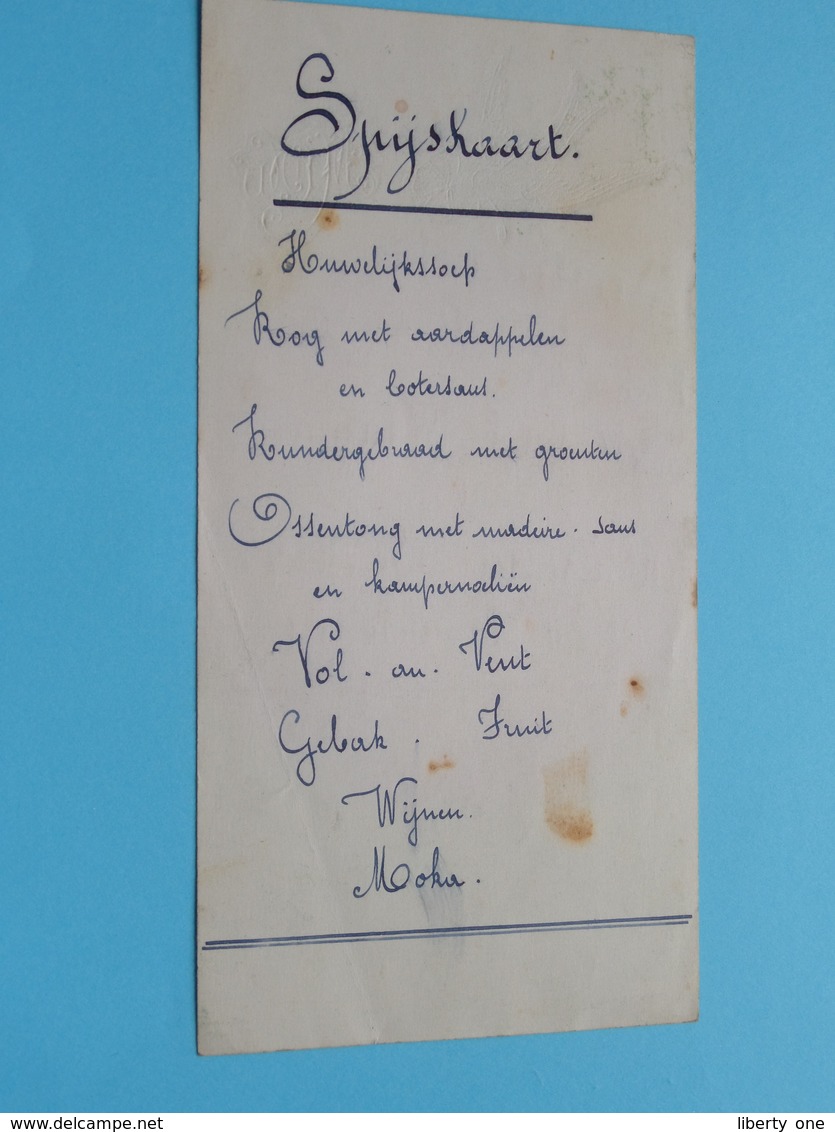 Spijskaart.
Huwelijkssoep
Rog met aardappelen
en botersaus.
Rundergebraad met groenten
Ossentong met madeire - saus
en kampernoeliën
Vol - au - Vent
Gebak . Fruit
Wijnen.
Moka.
www.delcampe.net
liberty one